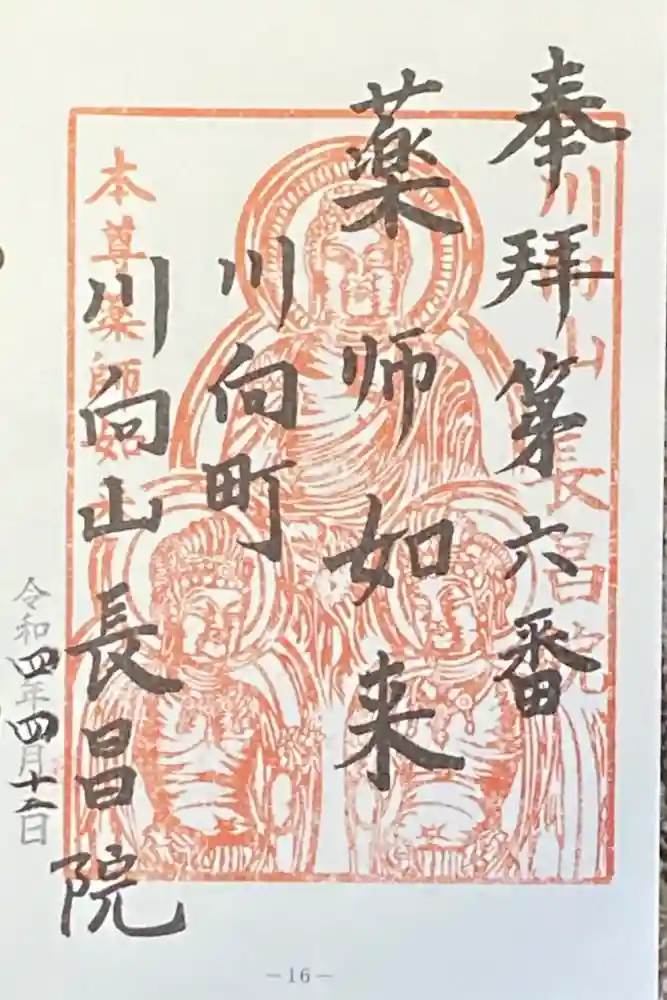 奉拜第六番
川向山長昌院
薬师如来
川向町
川向山長昌院
本尊薬師如
令和四年四月十二日
－16－